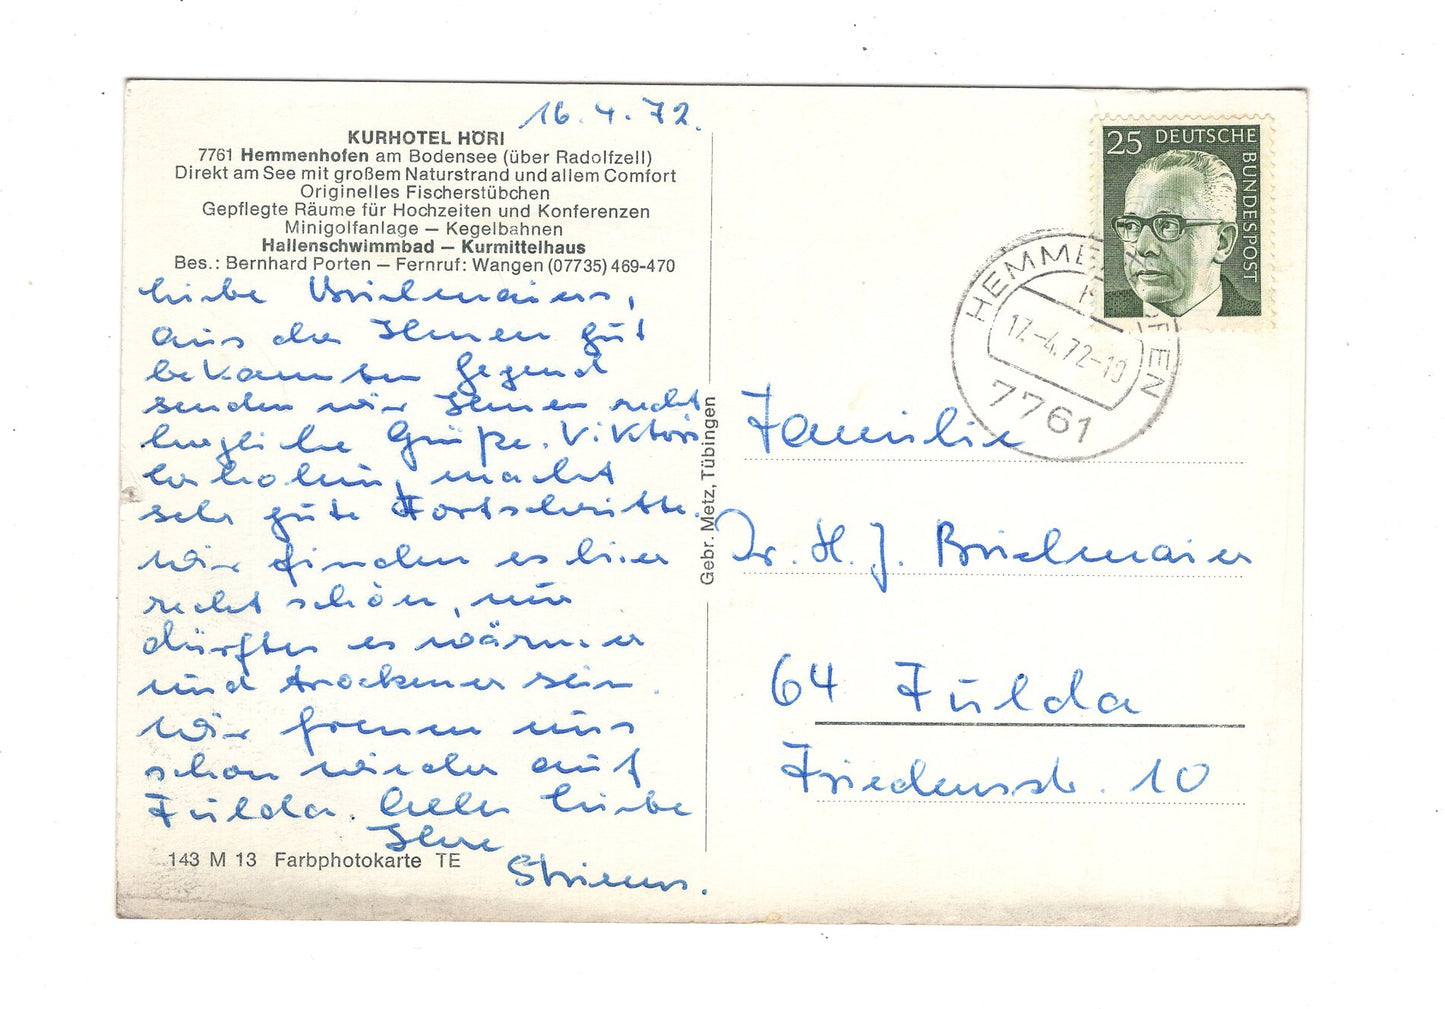 16.4.72.
KURHOTEL HÖRI
7761 Hemmenhofen am Bodensee (über Radolfzell)
Direkt am See mit großem Naturstrand und allem Comfort
Originelles Fischerstübchen
Gepflegte Räume für Hochzeiten und Konferenzen
Minigolfanlage — Kegelbahnen
Hallenschwimmbad — Kurmittelhaus
Bes.: Bernhard Porten — Fernruf: Wangen (07735) 469-470
Liebe Brielmaiers,
aus der Ihnen gut
bekannten Gegend
senden wir Ihnen recht
herzliche Grüße.
macht
sehr gute Fortschritte.
Wir finden es hier
recht schön, nur
dürfte es wärmer
und trockener sein.
Wir freuen uns
schon wieder auf
Fulda. Alles Liebe
Ihre
143 M 13 Farbphotokarte TE
Gebr. Metz, Tübingen
25 DEUTSCHE
BUNDESPOST
HEMMENHOFEN
17.-4.72-10
7761
Familie
Dr. H. J. Brielmaier
64 Fulda
Friedensstr. 10